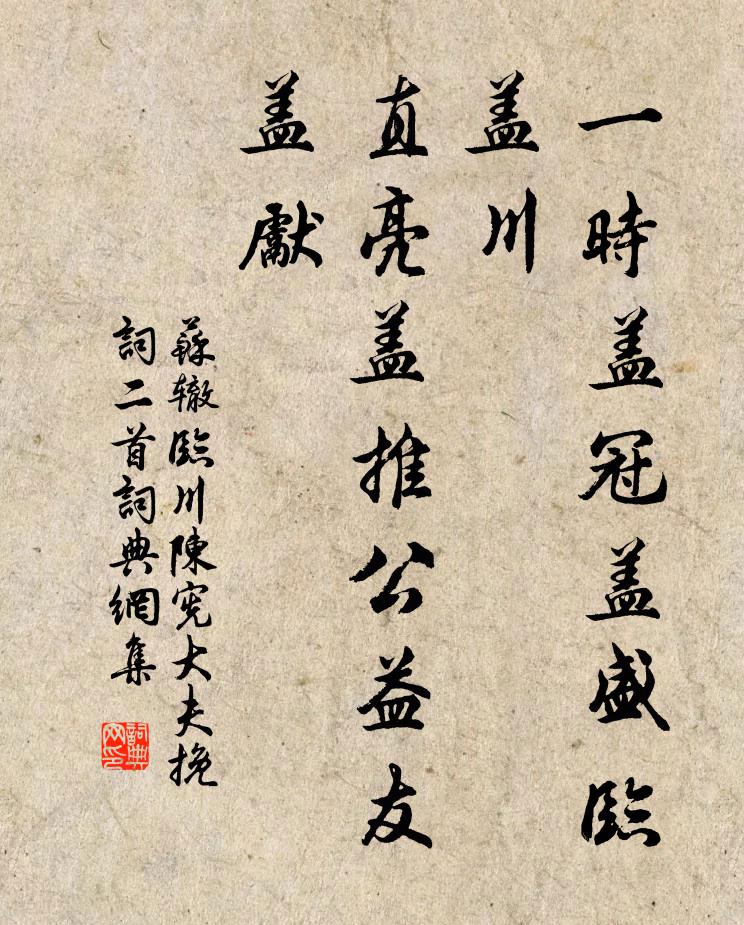 一時盖冠盖盛臨
盖川
直亮盖推公益友
盖獻
蘇辙臨川陳宪大夫挽
詞二首詞典網集
詞典网印